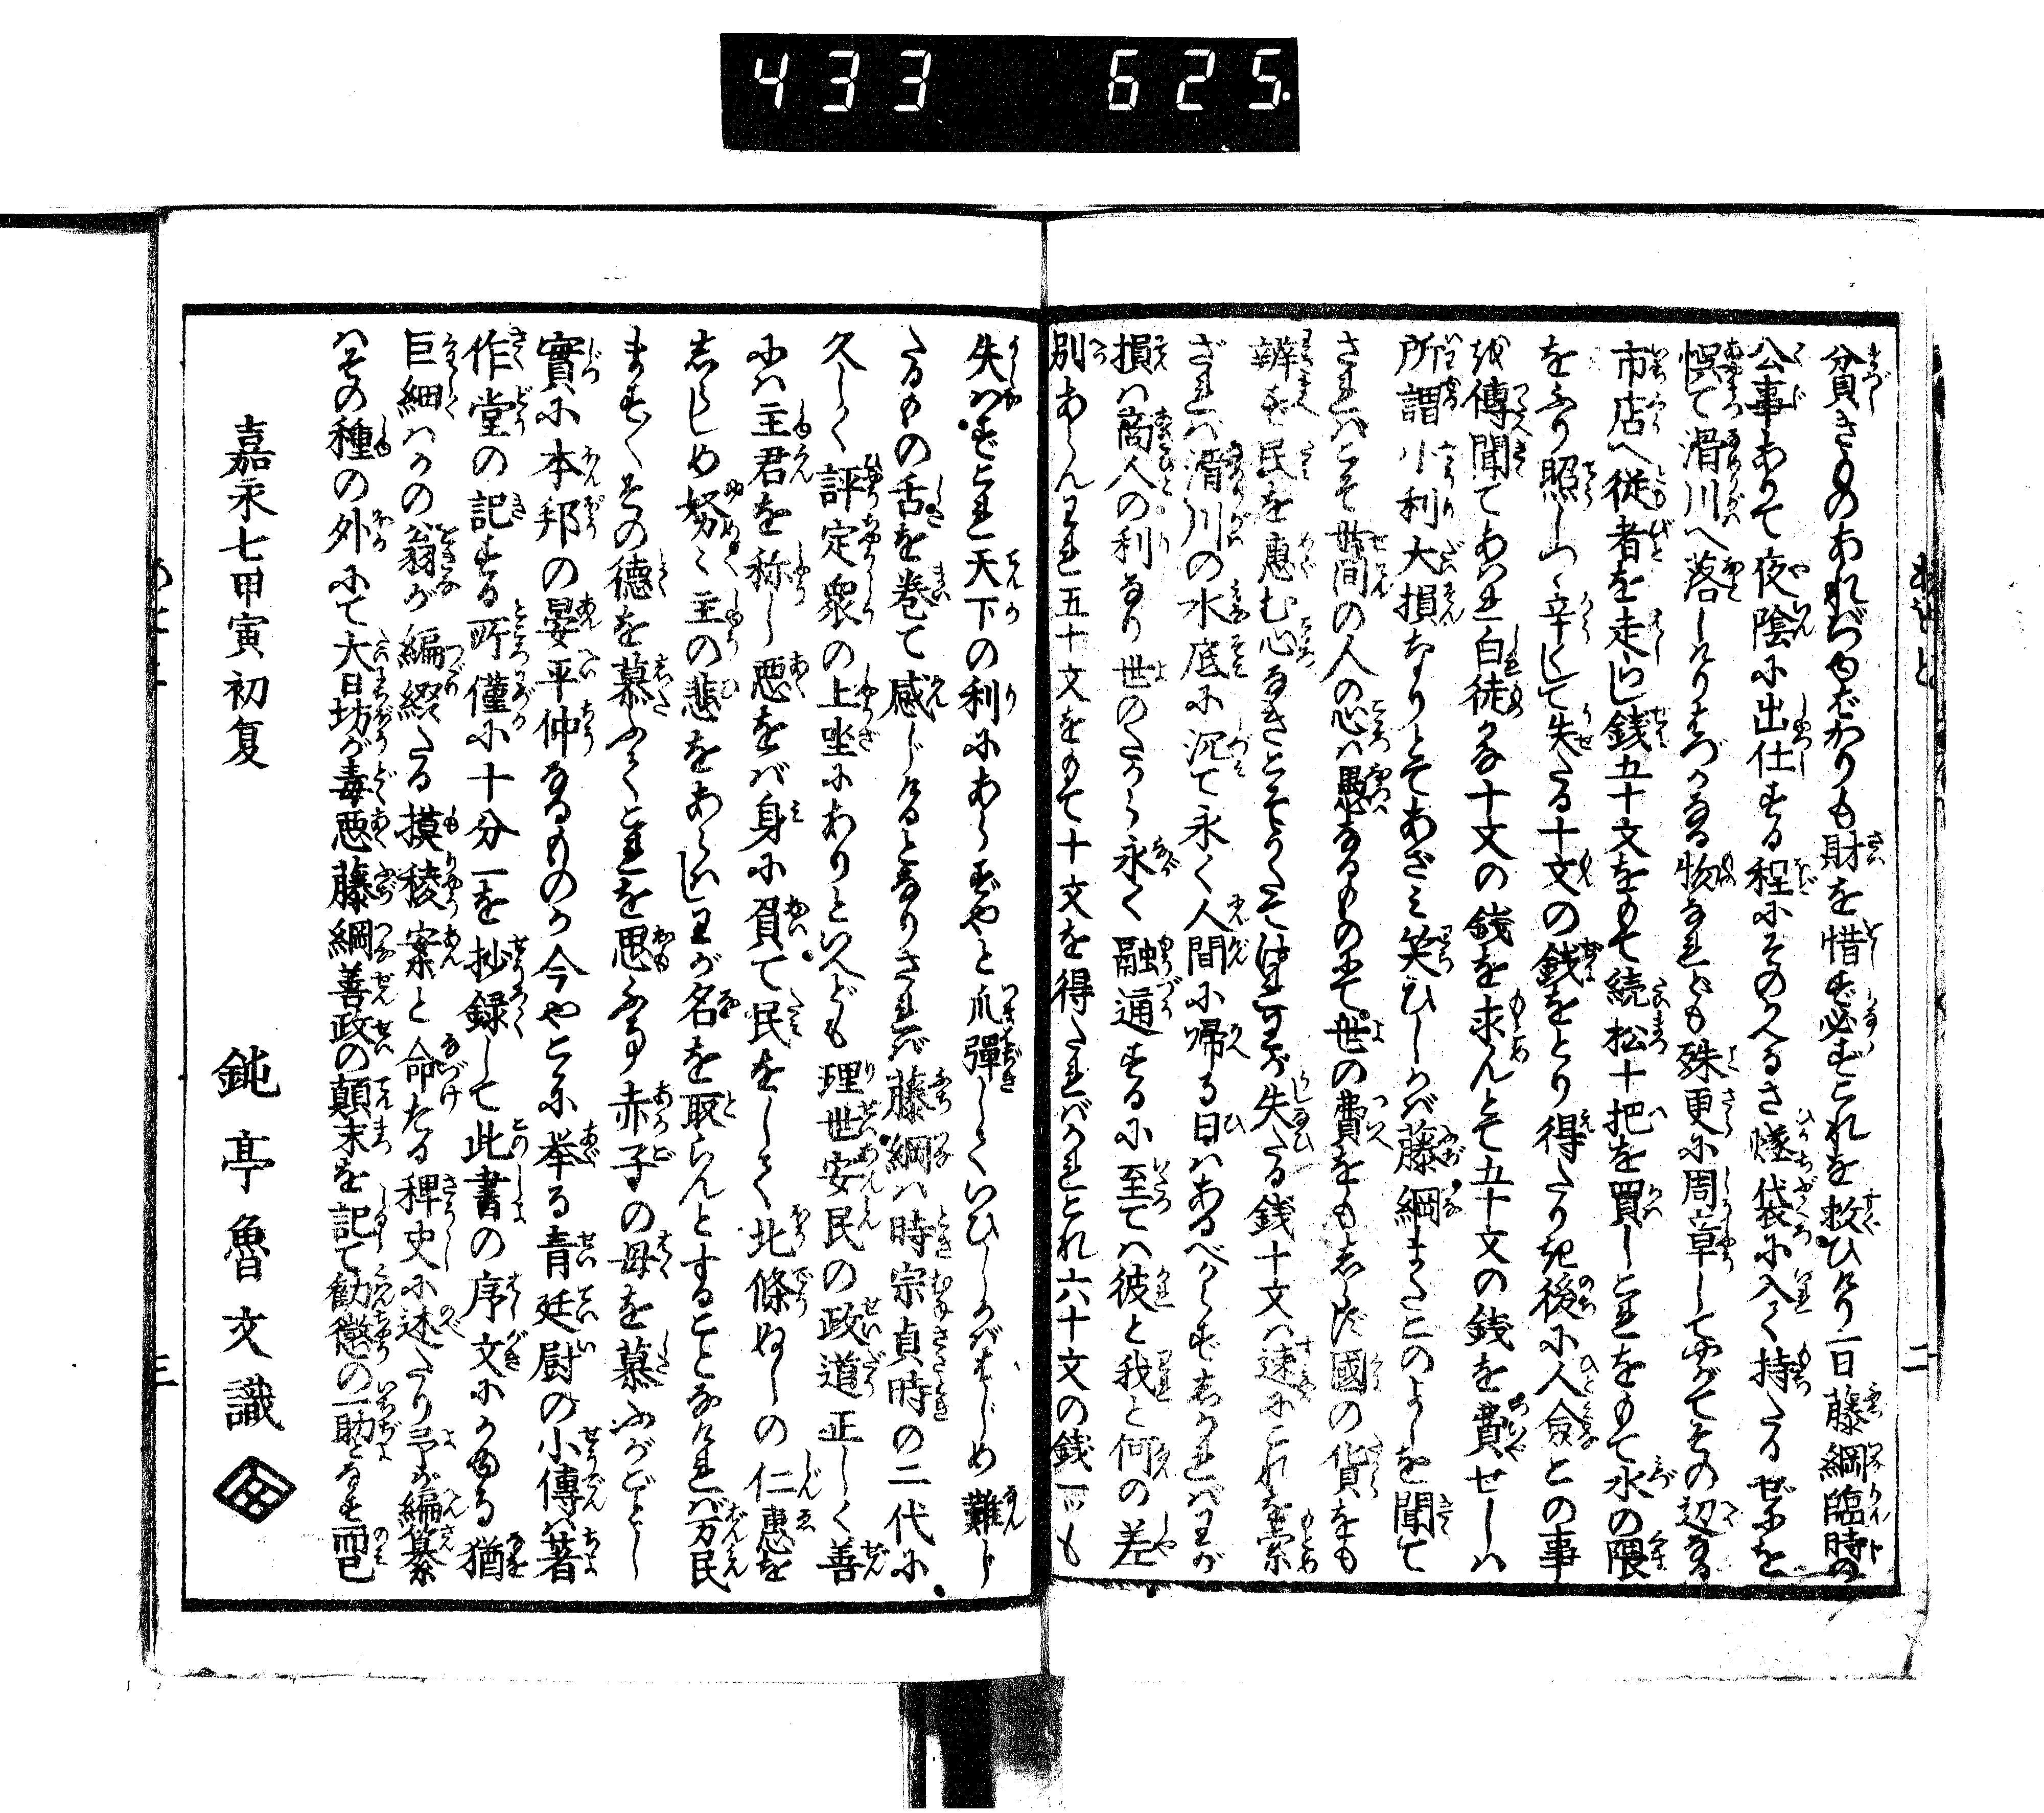 433 625.
貧きものあれバ由ばかりも財を惜ず必ずこれを救ひけり一日藤綱臨時の
公事ありて夜陰に出仕する程にそのかへるさ燧袋に入て持たる錢を
悞て滑川へ落しけりわづかなる物なれども殊更に周章してやがてその辺なる
市店へ従者を走らし銭五十文をもて続松十把を買しこれをもて水の隈
をふり照しつゝ辛くして失たる十文の銭をとり得たり其後に人僉との事
を傳聞てあれ白徒かな十文の錢を求んとて五十文の銭を費せしハ
所謂小利大損なりとてあざみ笑ひしかバ藤綱またこのよしを聞て
さればこそ世間の人の心ハ愚なるものにて世の費をもしらず國の貨をも
辨ず民を惠む心なきとこそうたてけれわが失たる銭十文ハ速にこれを索
ざれバ滑川の水底に沉て永く人間に帰る日ハあるべからずしかれバわが
損ハ商人の利なり世のたから永く融通するに至てハ彼と我と何の差
別あらんわれ五十文をもて十文を得たれバかれとこれ六十文の銭一ッも
失ハずこれ天下の利にあらずやと爪彈してくいひしかバはじめ難じ
たるもの舌を巻て感じけるとなりされバ藤綱ハ時宗貞時の二代に
久しく評定衆の上坐にありといへども理世安民の政道正しく善
にハ主君を称し悪をバ身に負て民をして北條ぬしの仁惠を
しらしめ努々主の悲をあらハしわが名を取らんとすることなけれバ万民
ますゝゝその德を慕ふてこれを思ふ事赤子の母を慕ふがごとし
實に本邦の晏平仲なるものか今やこゝに挙る青廷尉の小傳ハ著
作堂の記する所僅に十分一を抄録して此書の序文にかゆる猶
巨細ハかの翁が編綴たる摸稜案と命たる稗史に述たり予が編纂
ハその種の外にて大日坊が毒悪藤綱善政の顛末を記て勧懲の一助となす而已
嘉永七甲寅初夏
鈍亭魯文識
二
三